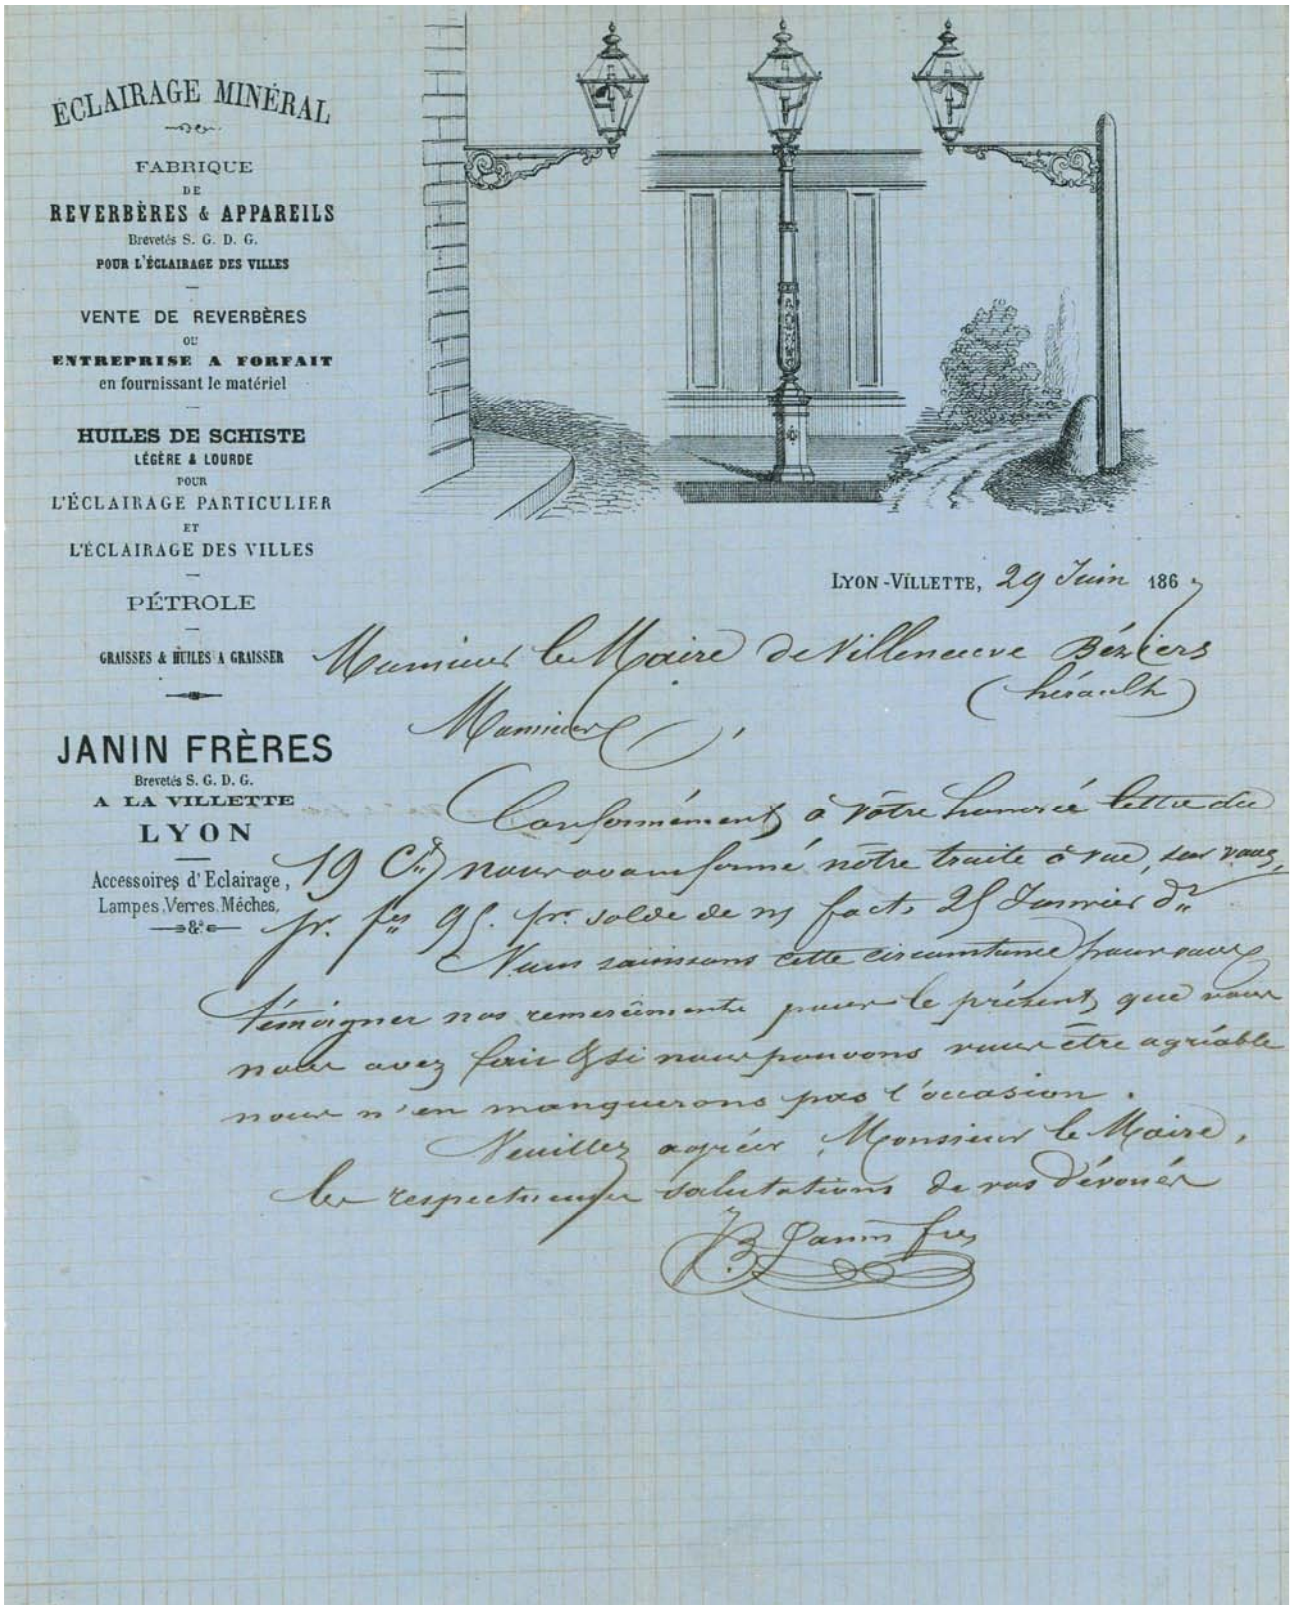 ÉCLAIRAGE MINÉRAL
FABRIQUE
DE
REVERBÈRES & APPAREILS
Brevetés S. G. D. G.
POUR L'ÉCLAIRAGE DES VILLES
VENTE DE REVERBÈRES
OU
ENTREPRISE A FORFAIT
en fournissant le matériel
HUILES DE SCHISTE
LÉGÈRE & LOURDE
POUR
L'ÉCLAIRAGE PARTICULIER
ET
L'ÉCLAIRAGE DES VILLES
PÉTROLE
GRAISSES & HUILES A GRAISSER
JANIN FRÈRES
Brevetés S. G. D. G.
A LA VILLETTE
LYON
Accessoires d'Eclairage,
Lampes, Verres, Mèches,
&ª
LYON-VILLETTE, 29 Juin 186
Monsieur le Maire de Villeneuve Béziers
(hérault)
Monsieur,
Conformément à vôtre honorée lettre du
19 Ct nous avons formé nôtre traite à vue, sur vous,
pr. fcs 95. pr. solde de n/ fact. 25 Janvier dr
Nous saisissons cette circonstance pour vous
témoigner nos remercîments pour le présent que vous
nous avez fait & si nous pouvons vous être agréable
nous n'en manquerons pas l'occasion.
Veuillez agréer, Monsieur le Maire,
les respectueuses salutations de vos dévoués
Janin fres